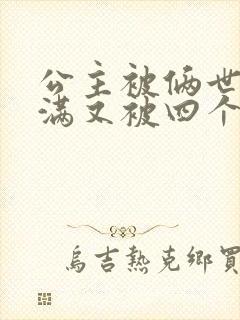 公主被俩世
满又被四个
烏吉熱克鄉買